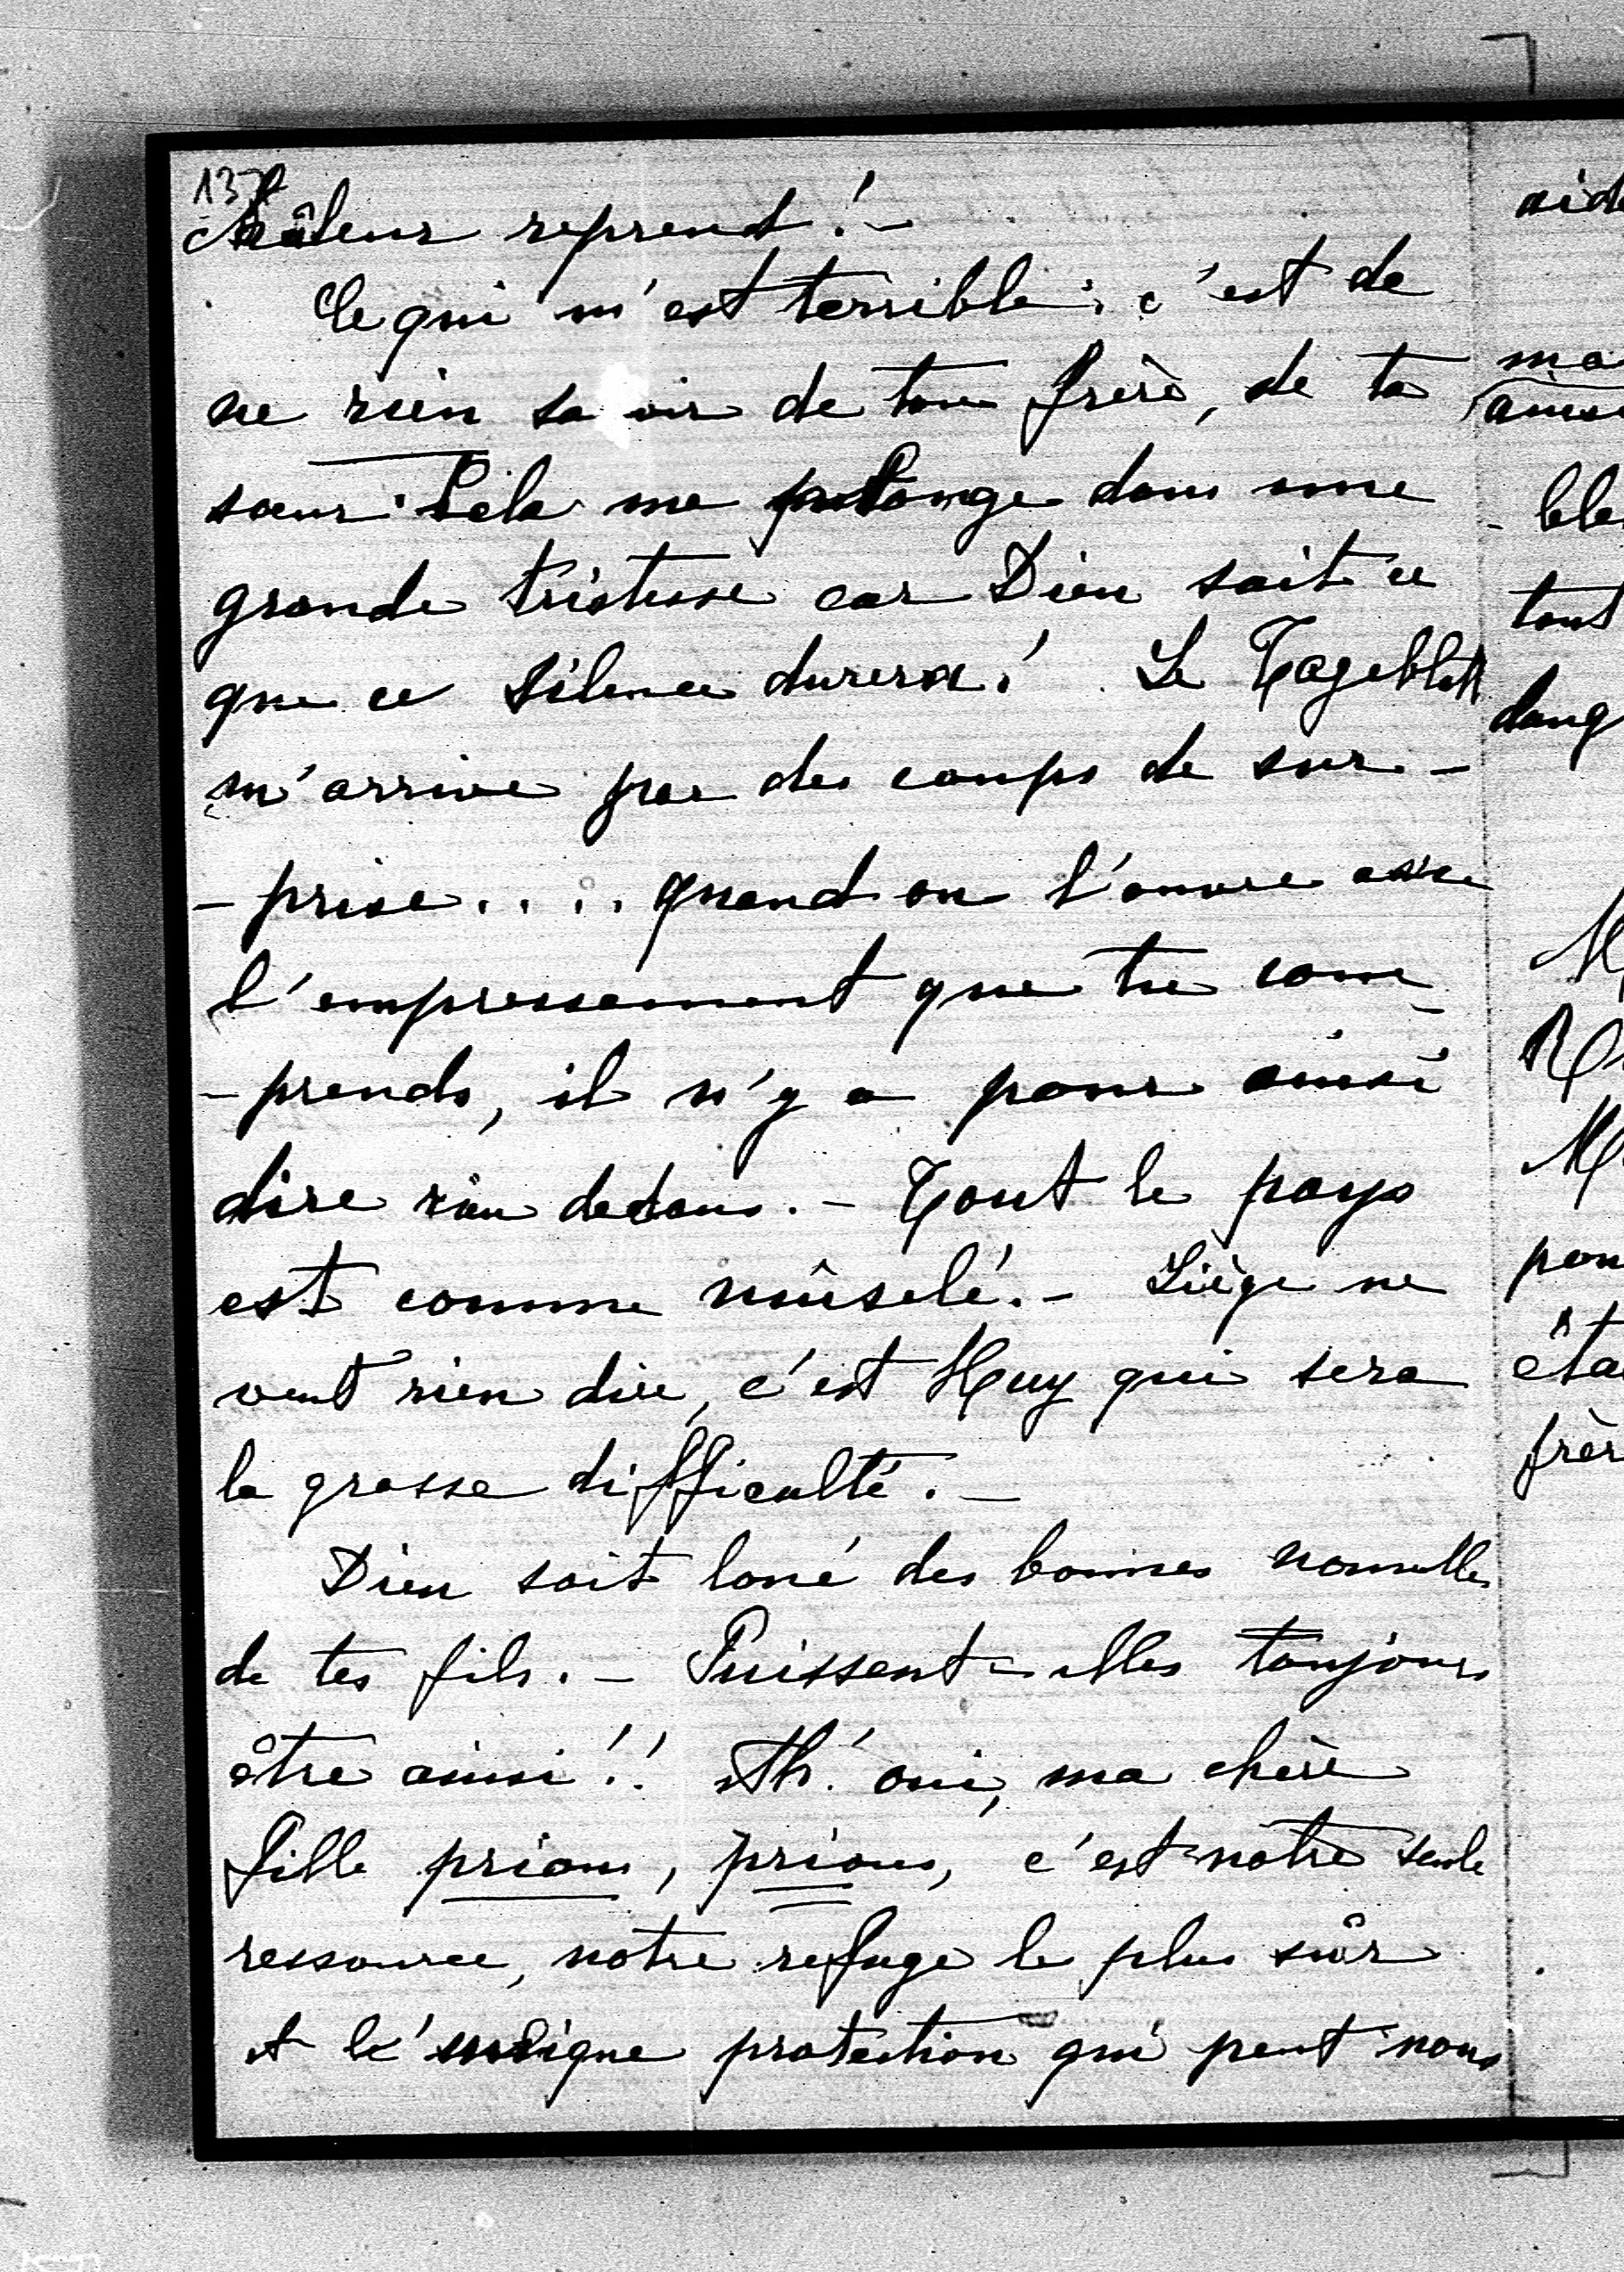 137
châleur reprend ! -
Ce qui m'est terrible, c'est de
ne rien savoir de ton frère, de ta
soeur. Cela me prolonge dans une
grande tristesse car Dieu sait ce
que ce silence durera ! Le Tageblatt
m'arrive par des coups de sur-
- prise.... quand on l'ouvre avec
l'empressement que tu com-
- prends, il n'y a pour ainsi
dire rien dedans. - Tout le pays
est comme mûselé. - Liège ne
veut rien dire, c'est Huy qui sera
la grosse difficulté. -
Dieu soit loué des bonnes nouvelles
de tes fils. - Puissent-elles toujours
être ainsi !! Ah ! oui, ma chère
fille prions, prions, c'est notre seule
ressource, notre refuge le plus sûr
et l'insigne protection qui peut nous
aid
ma
-ble
tout
dang
M
M
pou
éta
frèr